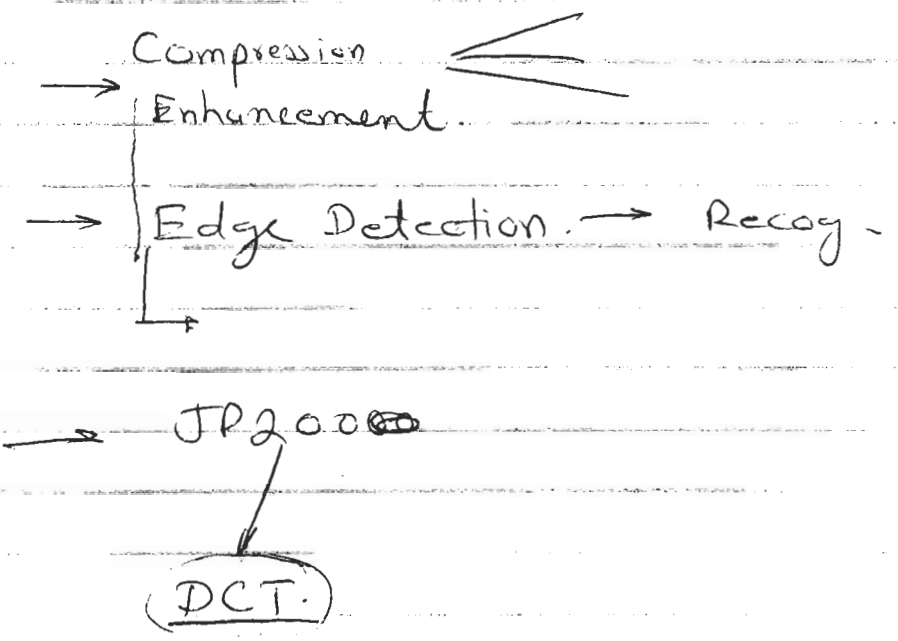 Compression
Enhancement.
Edge Detection. → Recog.
JP2000
DCT.